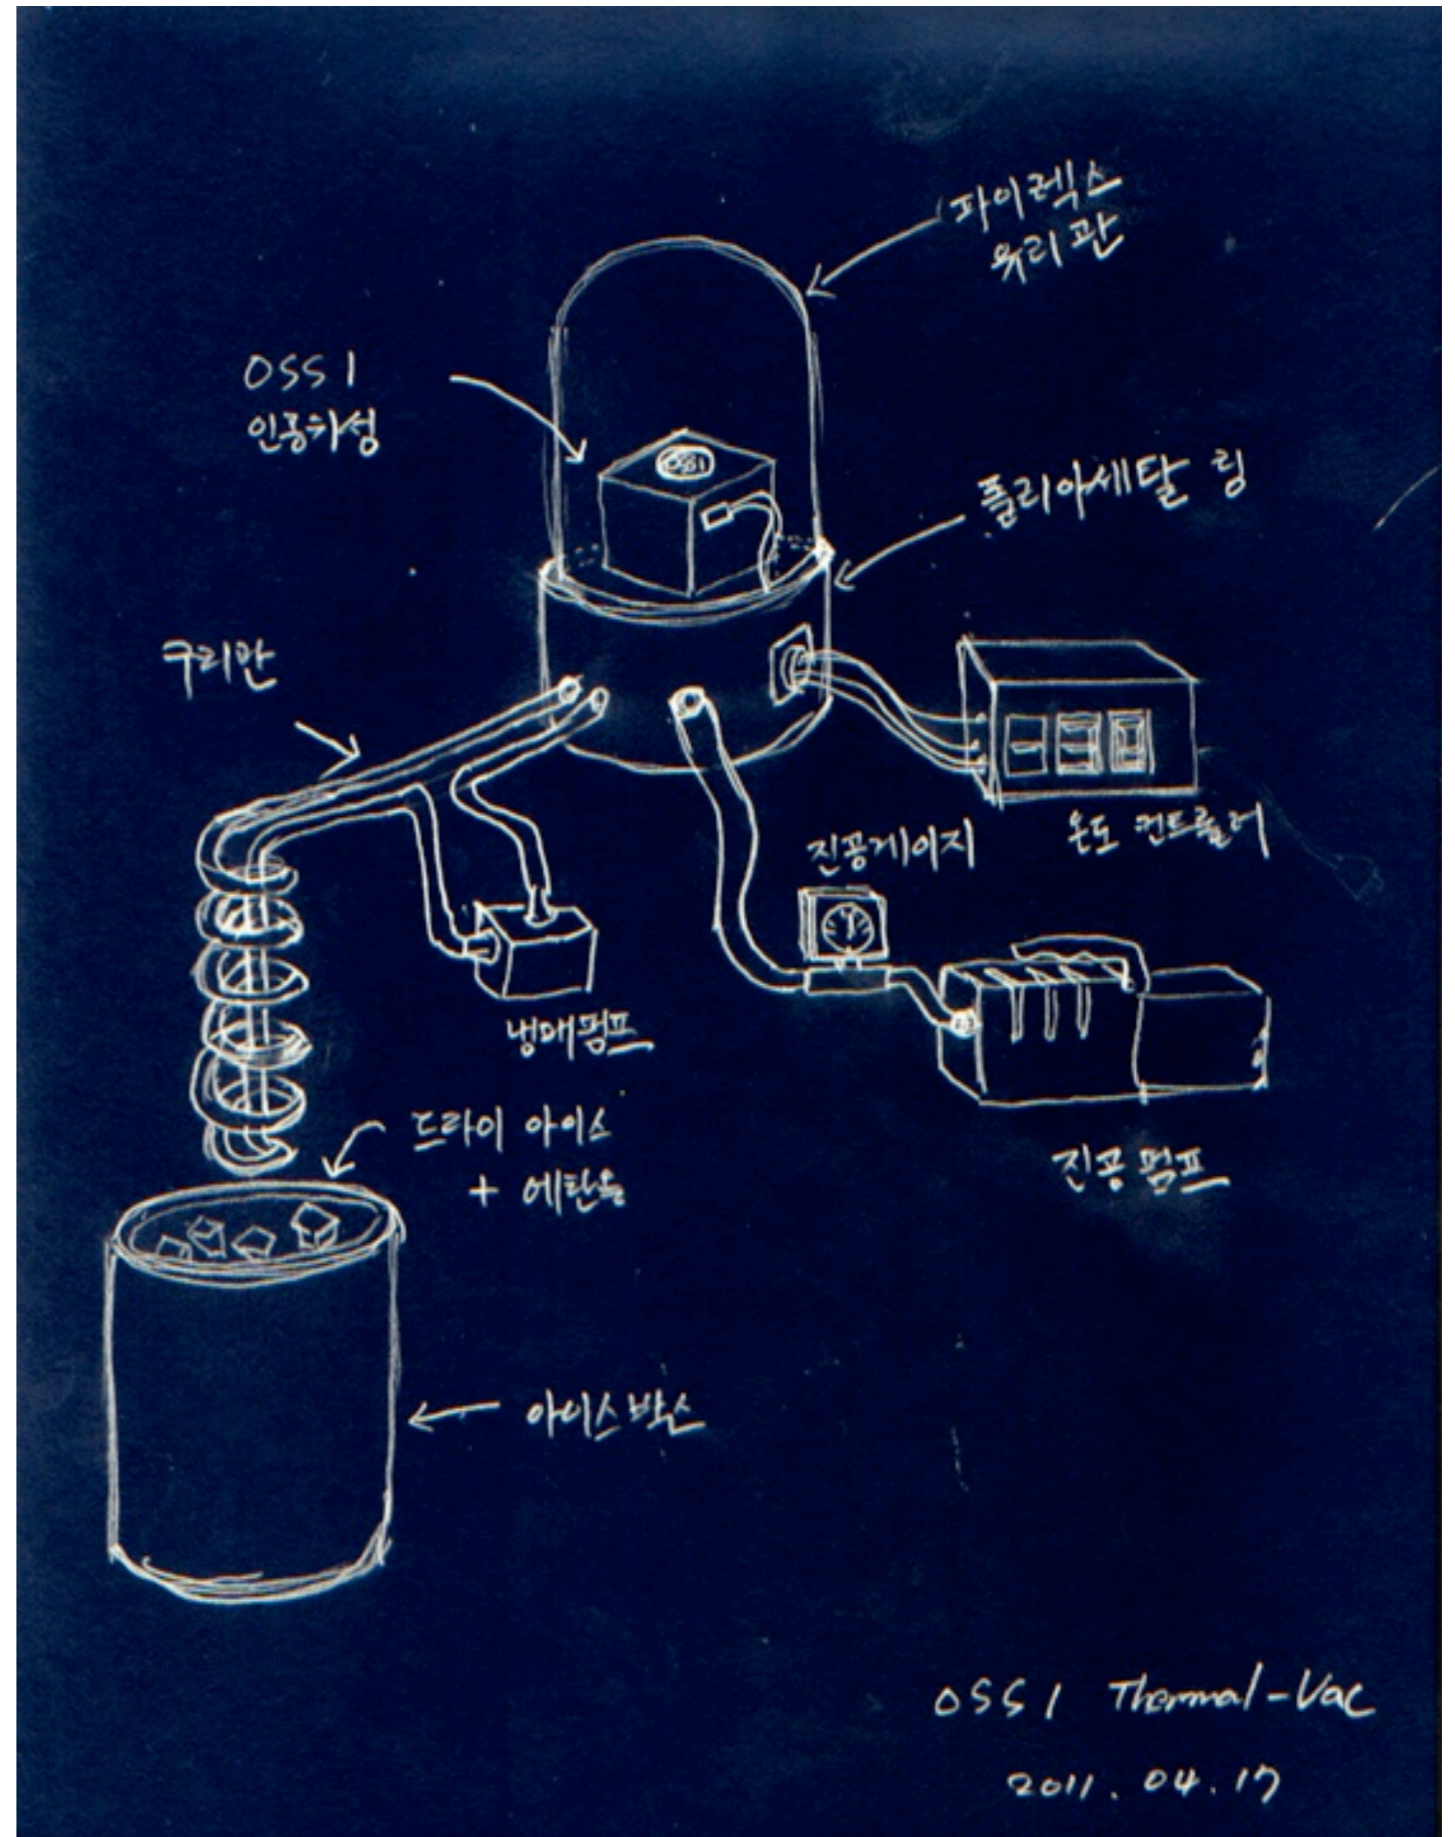 파이렉스
유리관
OSSI
인공위성
OSSI
폴리아세탈 링
구리관
-30
온도 컨트롤러
진공게이지
냉매펌프
드라이 아이스
+ 에탄올
진공펌프
아이스박스
OSSI Thermal-Vac
2011.04.17